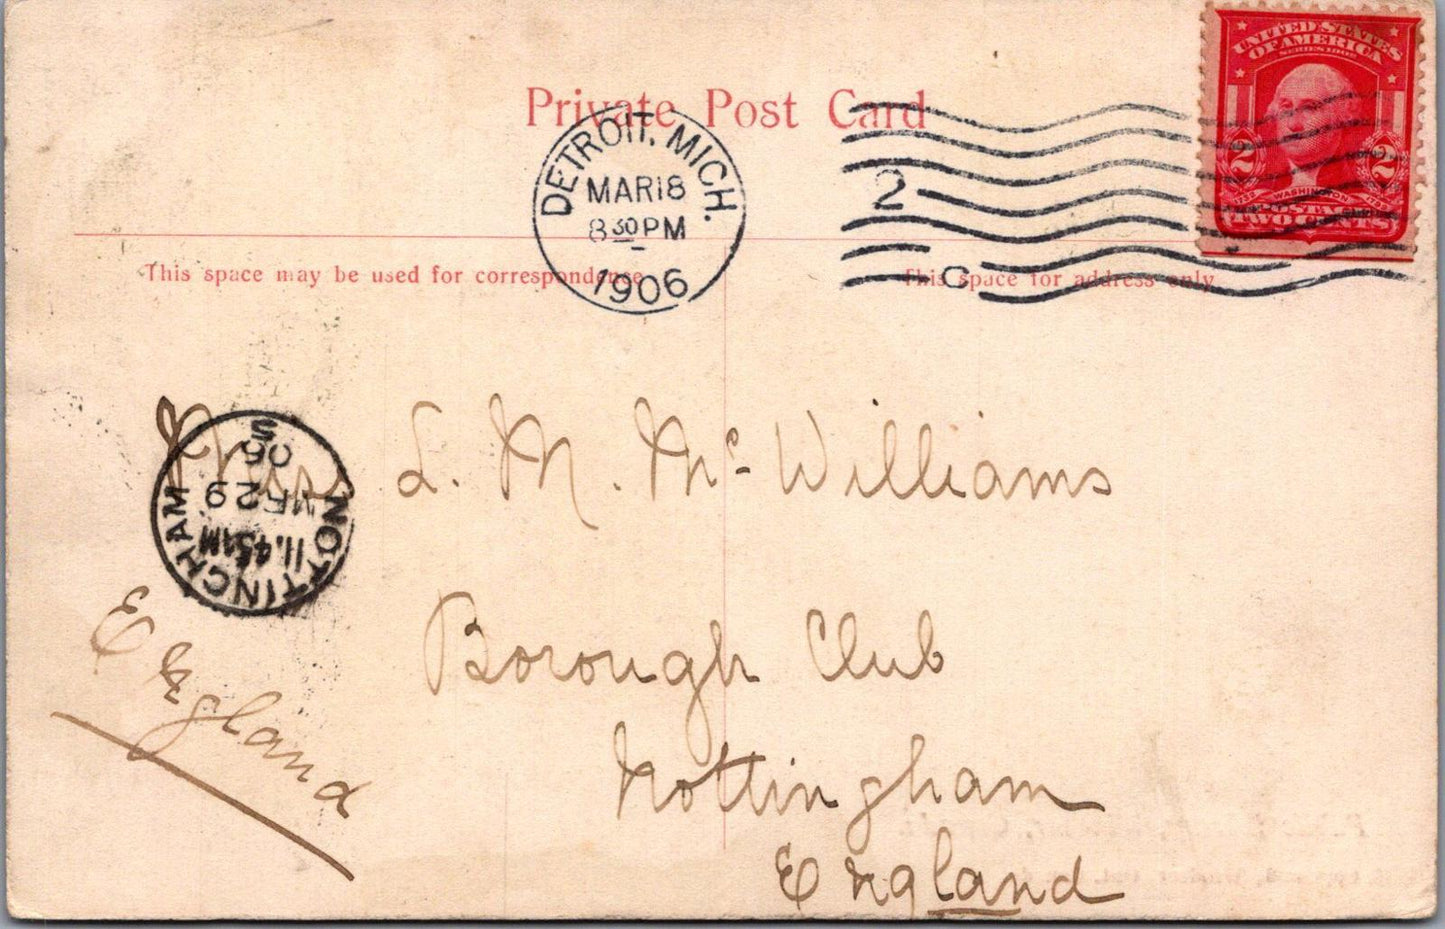 Private Post Card
UNITED STATES
OF AMERICA
SERIES 1902
2 2
WASHINGTON
POSTAGE
TWO CENTS
DETROIT, MICH.
MAR 18
8 30 PM
1906
2
C
This space may be used for correspondence
This space for address only.
L. M. Mc Williams
Borough Club
Nottingham
England
England
NOTTINGHAM
11.45 AM
MR 29
06
5